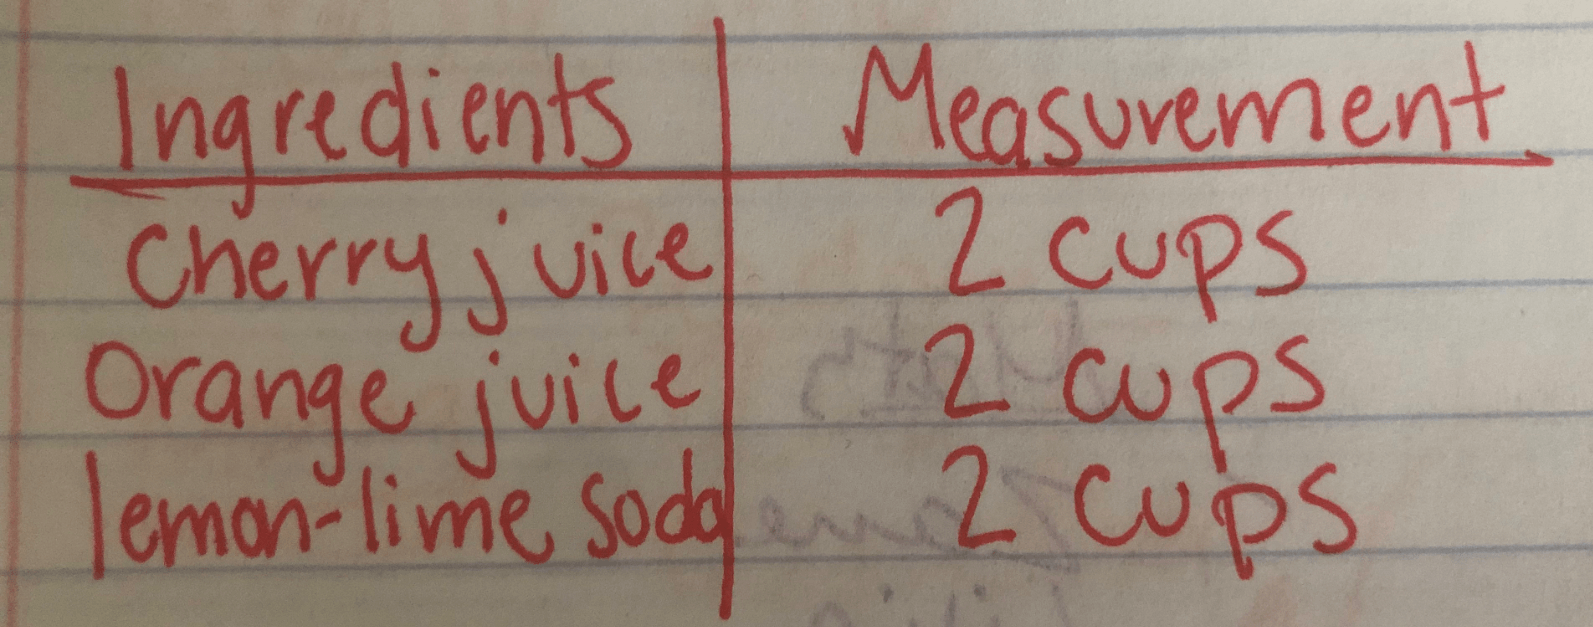 Ingredients Measurement
Cherry juice 2 cups
Orange juice 2 cups
lemon-lime soda 2 cups